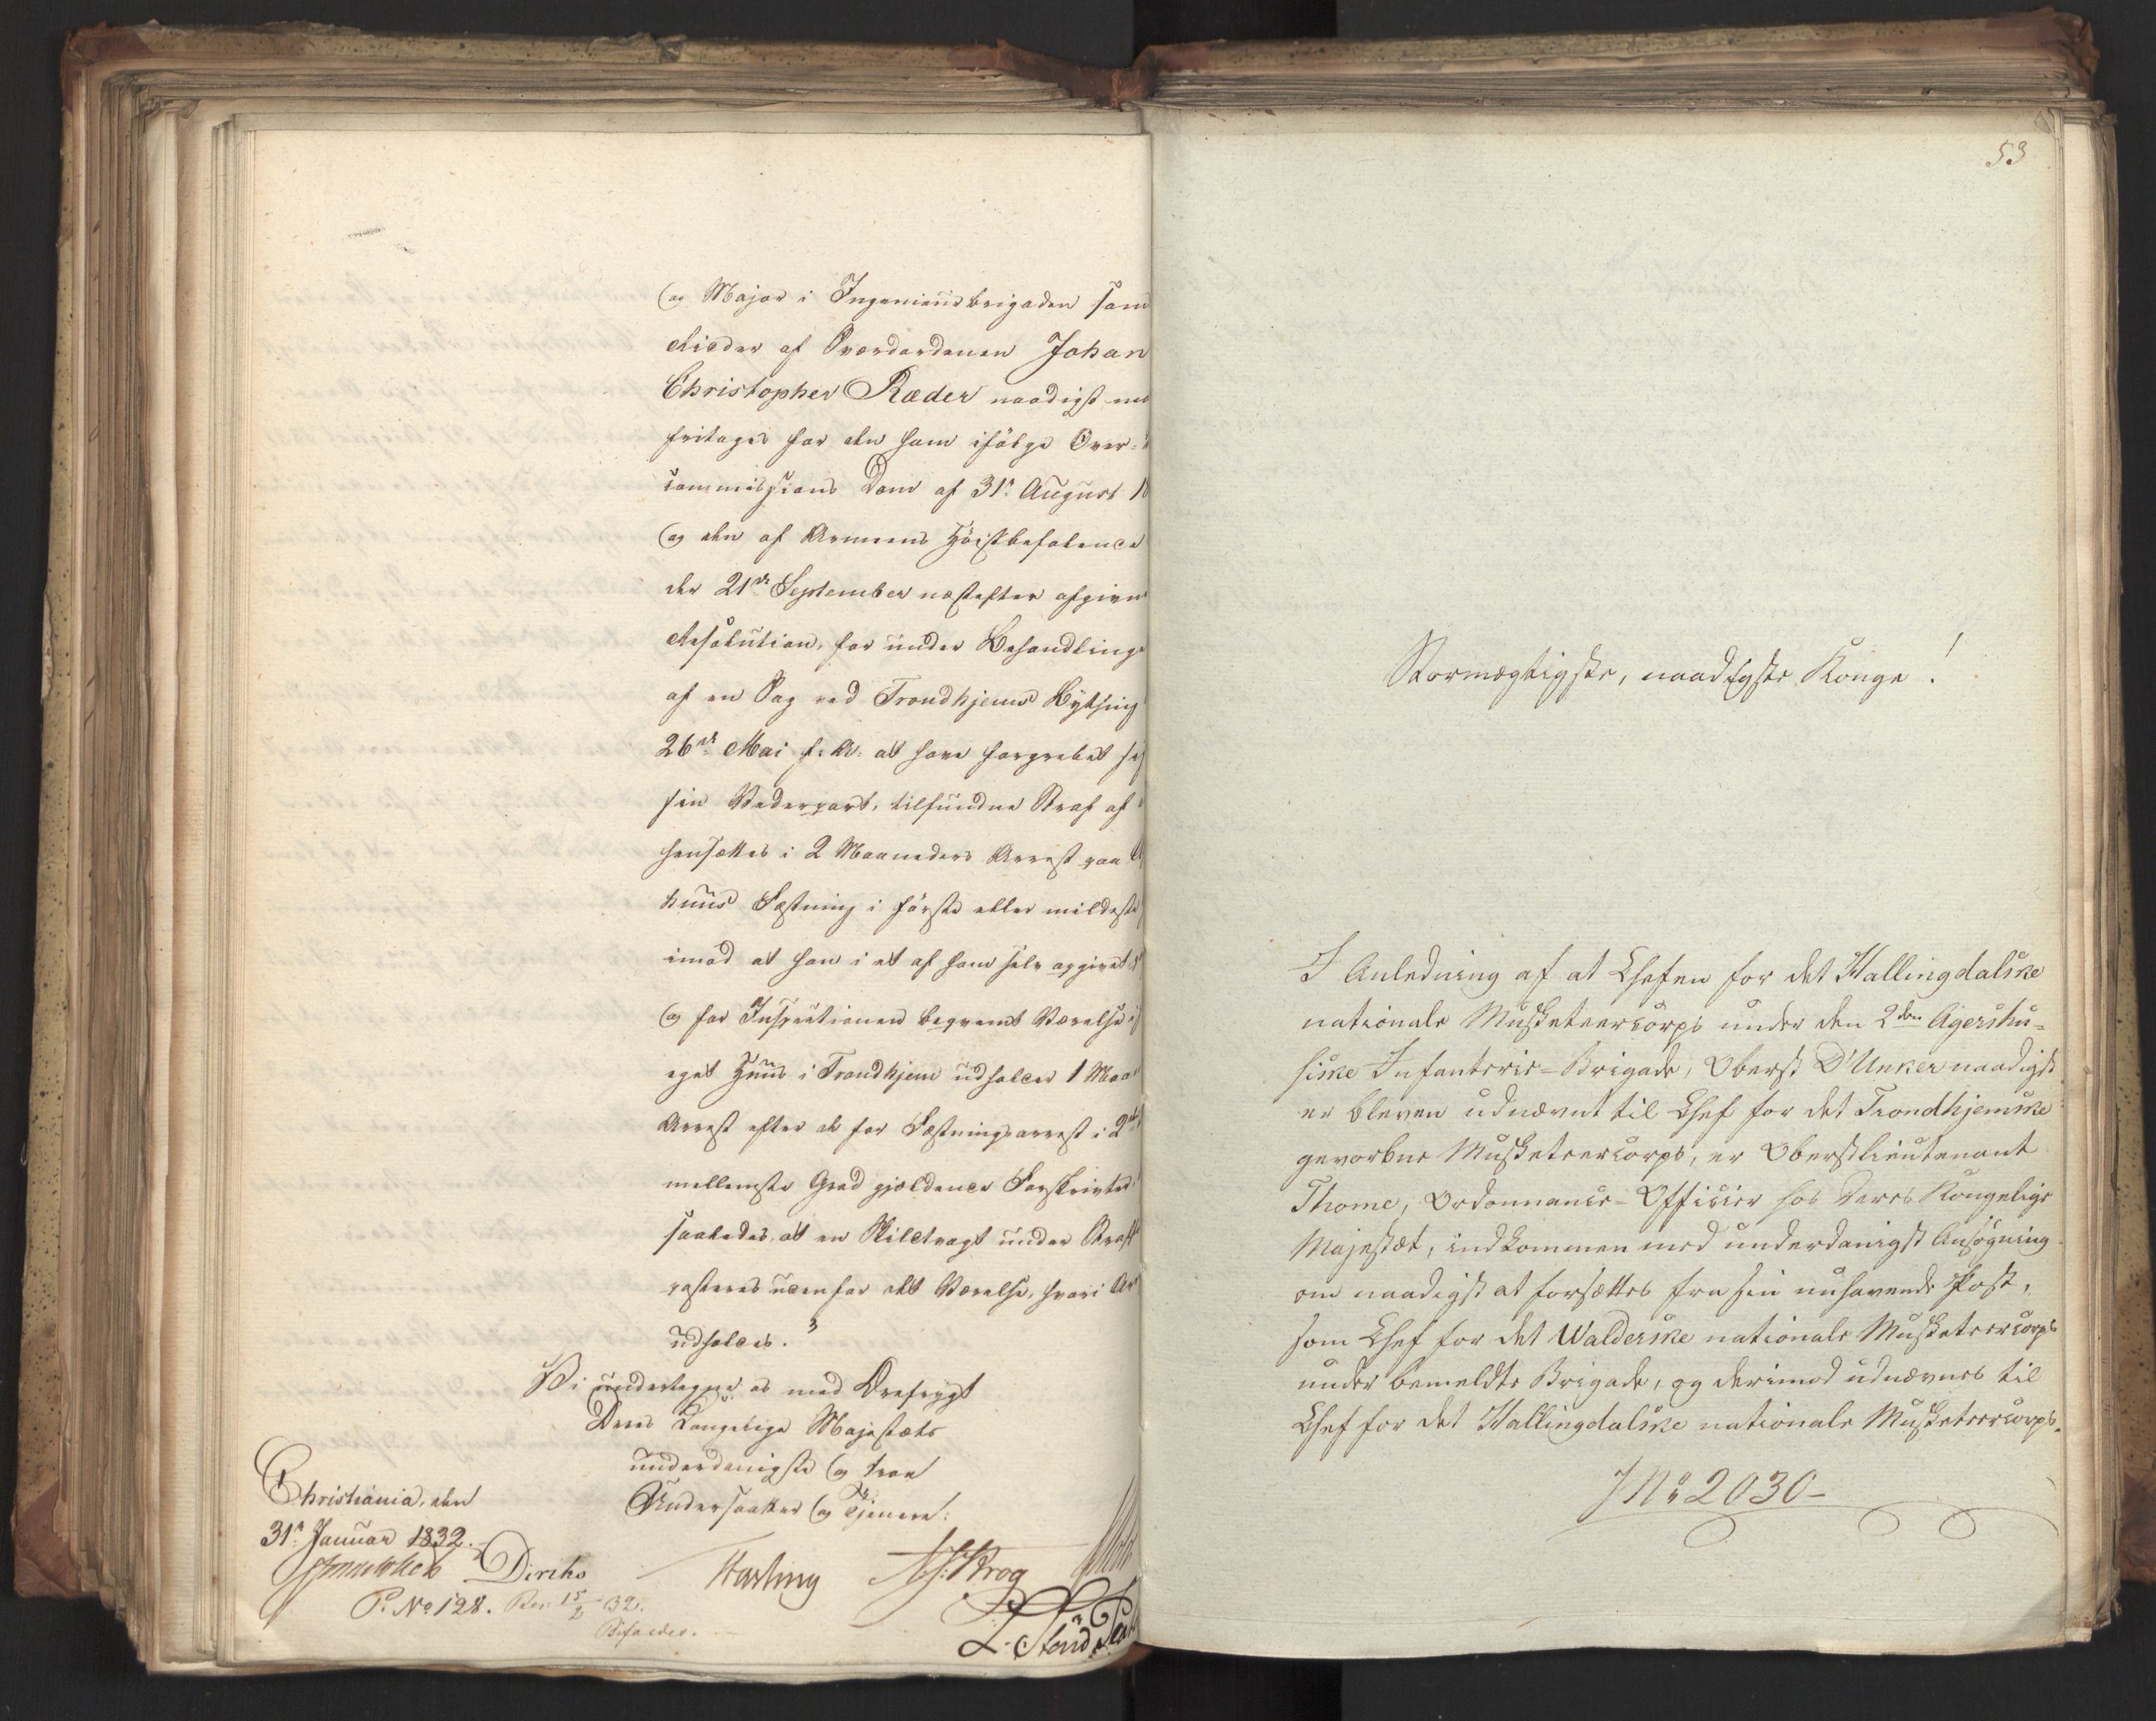 og Major i Ingenieurbrigaden samt
Ridder af Sværdordenen Johan
Christopher Ræder naadigst maa
fritages for den ham ifølge Over-
commissions Dom af 31te August 18
og den af Armeens Høistbefalende
den 21de September næstefter afgivne
Resolution, for under Behandlingen
af en Sag ved Trondhjems Bything
26de Mai f. A. at have forgrebet sig
sin Vederpart, tilfundne Straf af
hensættes i 2 Maaneders Arrest paa
huus Fæstning i første eller mildeste
imod at han i et af ham selv opgivet
og for Inspectionen beqvemt Værelse i
eget Huus i Trondhjem udholder 1 Maa
Arrest efter de for Fæstningsarrest i 2den
mellemste Grad gjældende Forskrivter
saaledes, at en Skildvagt under Straff
posteres udenfor det Værelse, hvori Ar
udholdes."
Vi underlegne os med Ærefrygt
Deres Kongelige Majestæts
underdanigste og troe
Undersaatter og Tjenere:
Christiania, den
31te Januar 1832.
Diriks Fasting Krog
P. No 128. Res. 15/2 32.
Bifaldes.
53
Stormægtigste, naadigste Konge!
I Anledning af at Chefen for det Hallingdalske
nationale Musketeercorps under den 2den Agershu-
siske Infanterie-Brigade, Oberst D'Unker naadigst
er bleven udnævnt til Chef for det Trondhjemske
gevorbne Musketeercorps, er Oberstlieutenant
Thome, Ordonnance-Officier hos Deres Kongelige
Majestæt, indkommen med underdanigst Ansøgning
om naadigst at forsættes fra sin nuhavende Post,
som Chef for det Walderske nationale Musketeercorps
under bemeldte Brigade, og derimod udnævnes til
Chef for det Hallingdalske nationale Musketeercorps.
J No 2030-